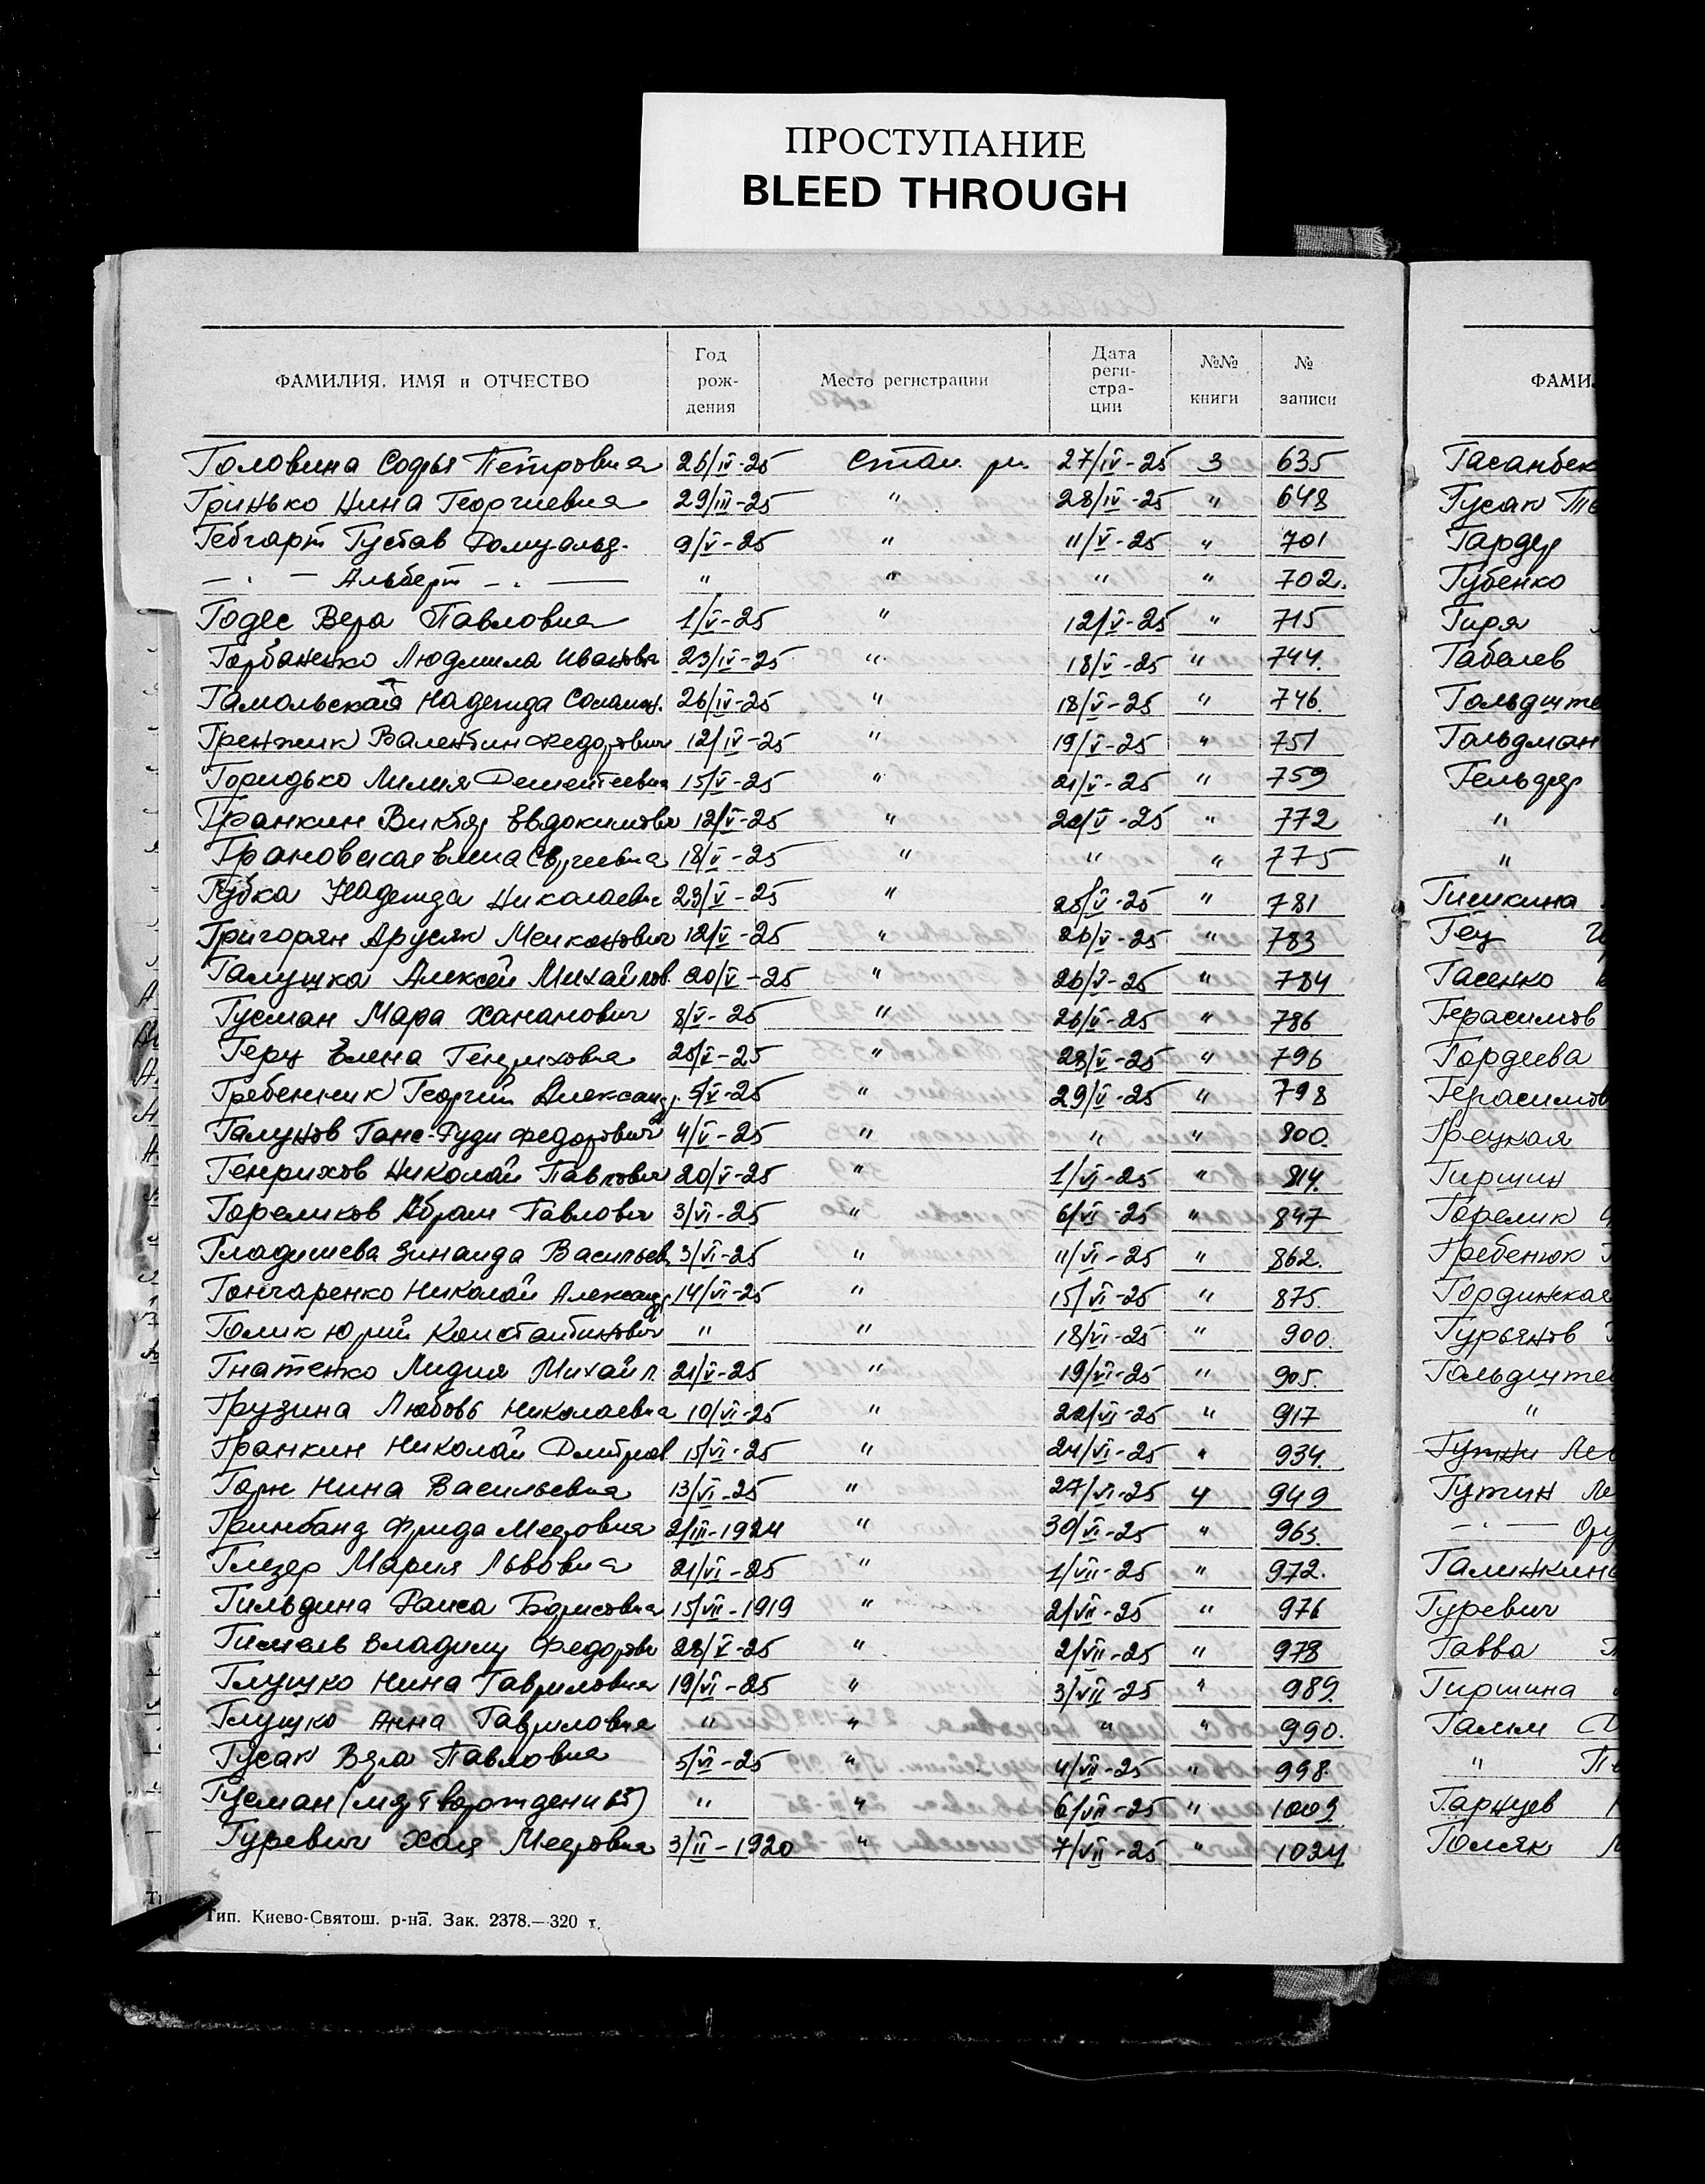 ПРОСТУПАНИЕ
BLEED THROUGH
ФАМИЛИЯ, ИМЯ и ОТЧЕСТВО Год рож- дения Место регистрации Дата реги- стра- ции №№ книги № записи
Головина Софья Петровна 26/IV-25 Стал. рн. 27/IV-25 3 635
Гринько Нина Георгиевна 29/III-25 " 28/IV-25 " 648
Гебгарт Густав Ромуальд. 9/V-25 " 11/V-25 " 701
— " — Альберт — " — " " " " 702.
Годес Вера Павловна 1/V-25 " 12/V-25 " 715
Горбаненко Людмила Ивановн 23/IV-25 " 18/V-25 " 744.
Гамольская Надежда 26/IV-25 " 18/V-25 " 746.
Гренжик Валентин Федорович 12/IV-25 " 19/V-25 " 751
Горидько Лилия Дементеевна 15/V-25 " 21/V-25 " 759
Гранкин Виктор Евдокимович 12/V-25 " /V-25 " 772
Грановская Сергеевна 18/V-25 " " " 775
Губка Надежда Николаевн 23/V-25 " 25/V-25 " 781
Григорян Арусяк Мелконович 12/V-25 " 26/V-25 " 783
Галушка Алексей Михайлов. 20/V-25 " 26/V-25 " 784
Гусман Мара Хананович 8/V-25 " 26/V-25 " 786
Герц Елена Генриховна 25/V-25 " 28/V-25 " 796
Гребенник Георгий Александр. 5/V-25 " 29/V-25 " 798
Галунов Ганс-Руди Федорович 4/V-25 " " " 800.
Генрихов Николай Павлович 20/V-25 " 1/VI-25 " 814.
Гореликов Абрам Павлович 3/VI-25 " 6/VI-25 " 847
Гладишева Зинаида Васильев 3/VI-25 " 11/VI-25 " 862.
Гончаренко Николай Александр 14/VI-25 " 15/VI-25 " 875.
Голик Юрий Константинович " " 18/VI-25 " 900.
Гнатенко Лидия Михайл. 21/V-25 " 19/VI-25 " 905.
Грузина Любовь Николаевна 10/VI-25 " /VI-25 " 917
Гранкин Николай Дмитриев 15/VI-25 " 24/VI-25 " 934.
Горн Нина Васильевна 13/VI-25 " 27/VI-25 4 949
Гринбанд Фрида Мееровна 2/III-1924 " 30/VI-25 " 963.
Глезер Мария Львовна 21/VI-25 " 1/VII-25 " 972.
Гильдина Раиса Борисовна 15/VII-1919 " 2/VII-25 " 976
Гимель Владимир Федоров 28/V-25 " 2/VII-25 " 978
Глушко Нина Гавриловна 19/VI-25 " 3/VII-25 " 989.
Глушко Анна Гавриловна " " " " 990.
Гусак Вера Павловна 5/VI-25 " 4/VII-25 " 998.
Гусман (мертворожденный) " " 6/VII-25 " 1009.
Гуревич Хая Мееровна 3/II-1920 " 7/VII-25 " 1024
Тип. Киево-Святош. р-на. Зак. 2378.—320 т.
ФАМИ
Гасанбек
Гусак
Гардер
Губенко
Гиря
Габелев
Гольдште
Гольдман
Гельфер
"
"
Гишкина
Гец
Гасенко
Герасимов
Гордеева
Герасимов
Грецкая
Гиршин
Горелик
Гребенюк
Гординская
Гурьянов
Гольдштей
"
Гутин Ле
— " —
Галинкина
Гуревич
Гавва
Гиршина
Галим
"
Гарнцев
Голяк